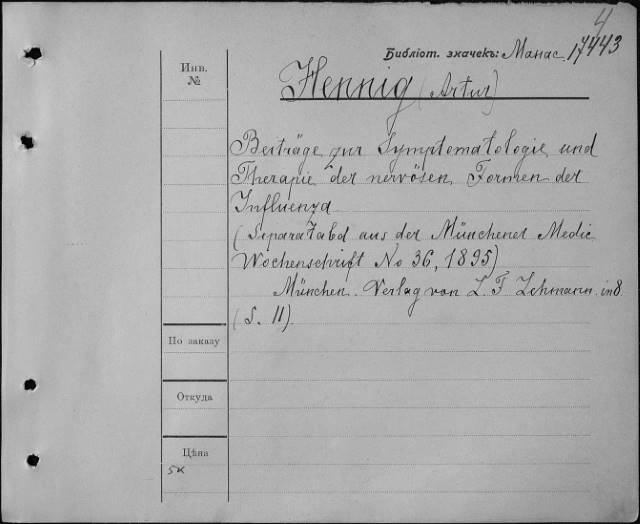 4
Библіот. значекъ: Манас. 17443
Инв.
№
Hennig (Artur)
Beiträge zur Symptomatologie und
Therapie der nervösen Formen der
Influenza
(Separatabd aus der Münchener Medic
Wochenschrift No 36, 1895)
München. Verlag von L. F. Lehmann. in 8.
(S. 11).
По заказу
Откуда
Цѣна
5к